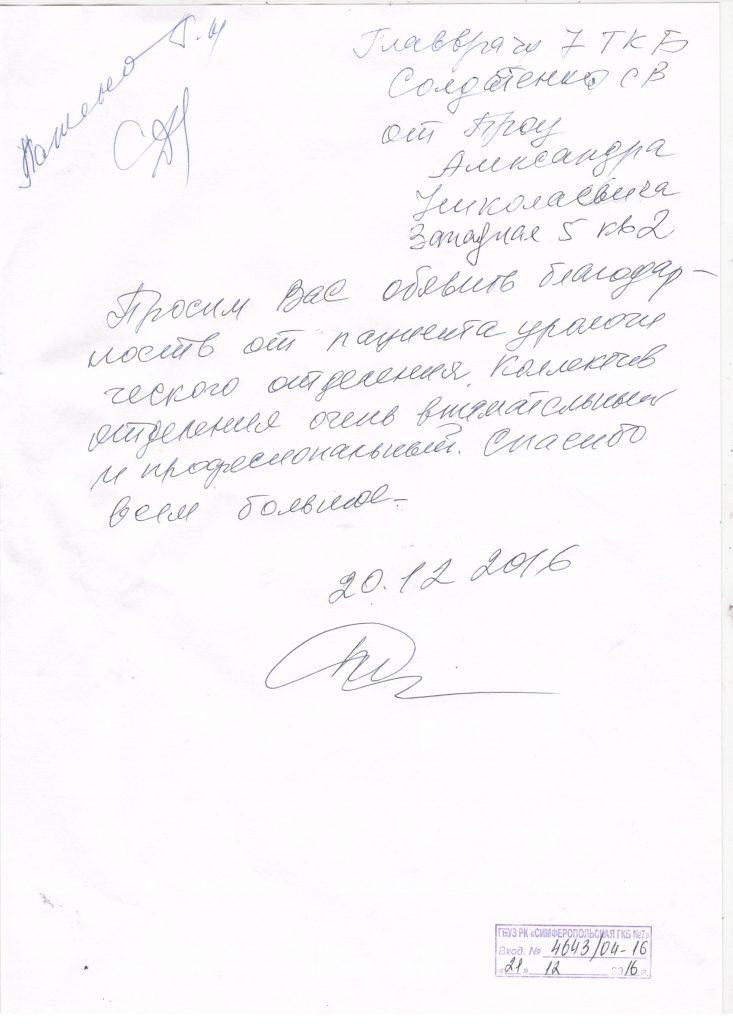 Г.И
Главврачу 7 ТКБ
Солдатенко СВ
от Проц
Александра
Николаевича
Западная 5 кв 2
Просим Вас объявить благодар-
ность от пациента урологи
ческого отделения. Коллектив
отделения очень внимательный
и професиональный. Спасибо
всем большое.
20.12 2016
ГБУЗ РК «СИМФЕРОПОЛЬСКАЯ ГКБ №7»
Вход. № 4643/04-16
«21» 12 2016 г.